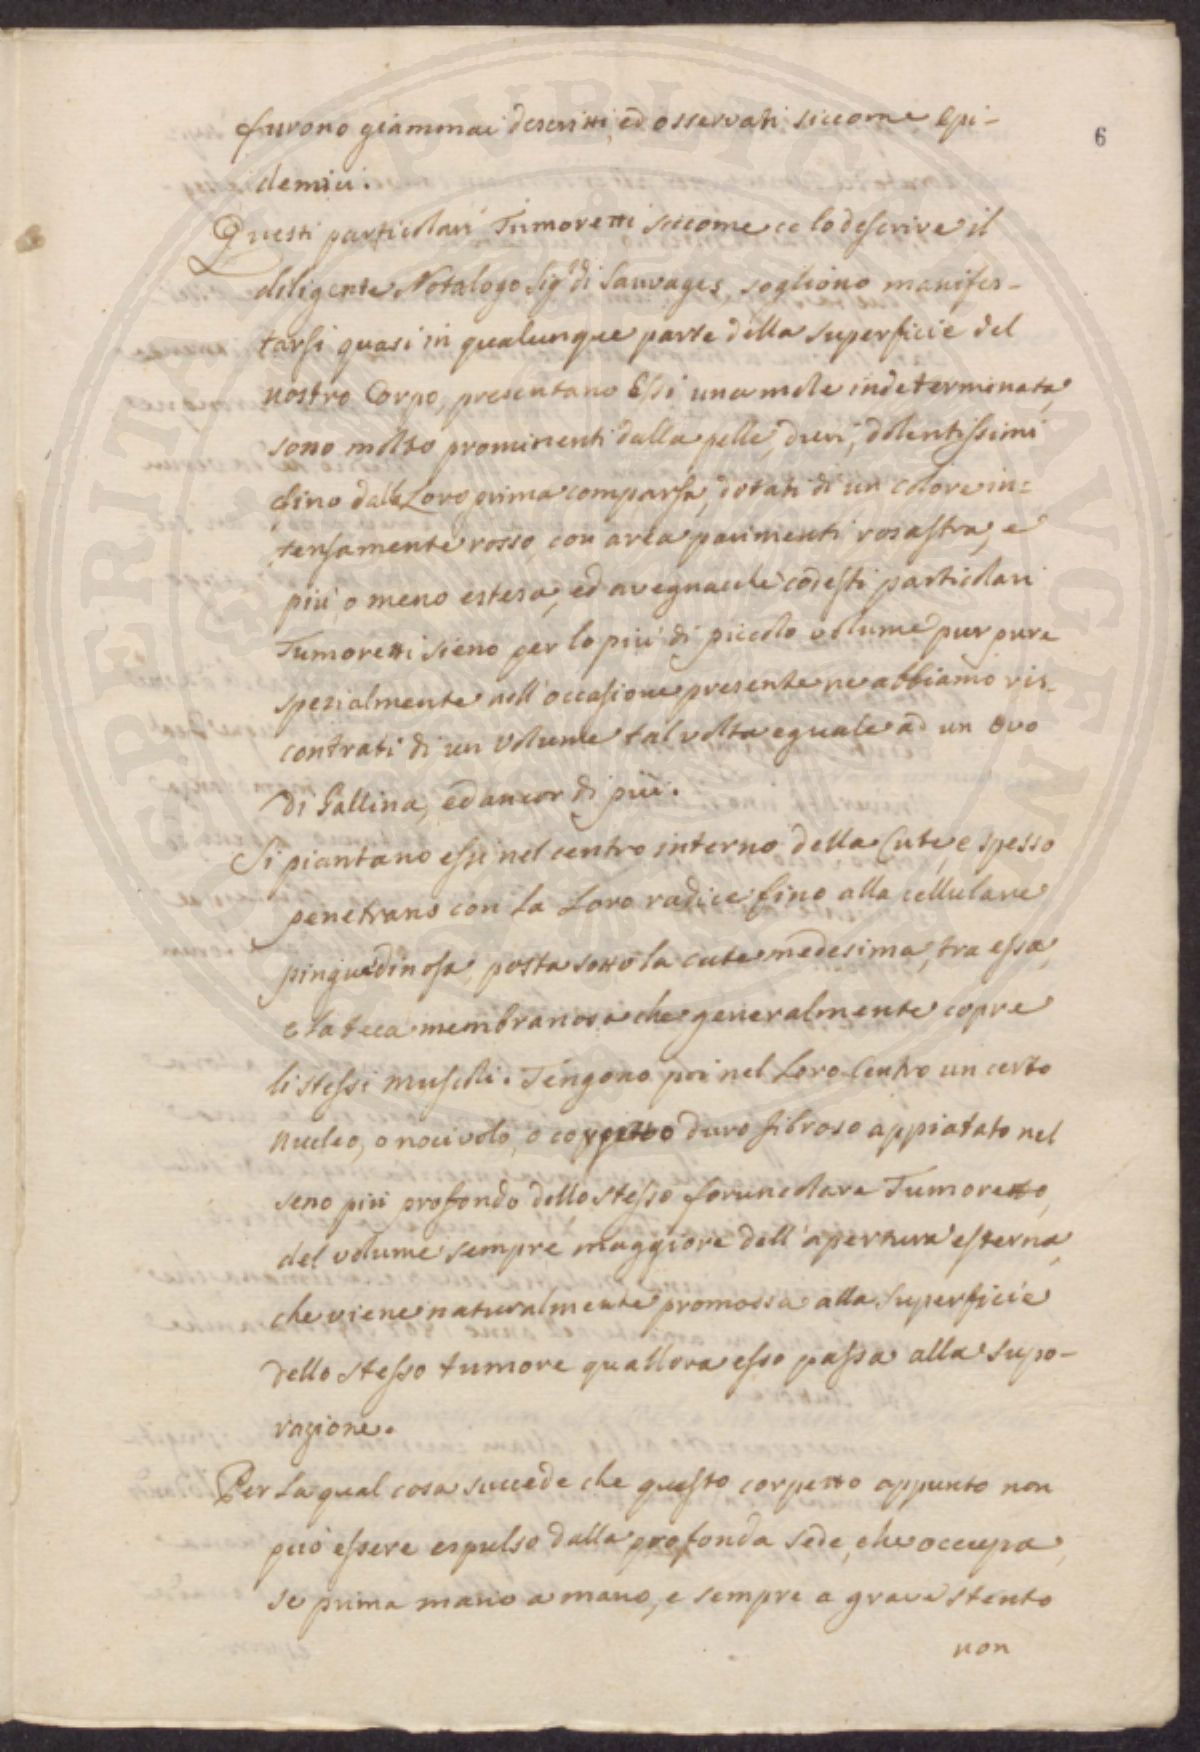 furono giammai descritti, ed osservati siccome Epi-
demici.
Questi particolari Tumoretti siccome ce lo descrive il
diligente Notalogo Sigr di Sauvages sogliono manifes-
tarsi quasi in qualunque parte della superficie del
nostro Corpo, presentano Essi una mole indeterminata,
sono molto prominenti dalla pelle, duri, dolentissimi
fino dalla Loro prima comparsa, dotati di un colore in=
tensamente rosso, con area parimenti rosastra, e
più, o meno estesa, ed avegnacchè codesti particolari
Tumoretti sieno per lo più di piccolo volume pur pure
spezialmente nell'occasione presente ne abbiamo ris-
contrati di un Volume tal volta eguale ad un Ovo
di Gallina, ed ancor di più.
Si piantano essi nel centro interno della Cute, e spesso
penetrano con la Loro radice fino alla cellulare
pinguedinosa, posta sotto la cute medesima, tra essa,
e la teca membranosa che generalmente copre
li stessi muscoli. Tengono poi nel Loro Centro un certo
nucleo, o nocivolo, o corpetto duro fibroso appiatato nel
seno più profondo dello stesso foruncolare Tumoretto,
del volume sempre maggiore dell'apertura esterna,
che viene naturalmente promossa alla Superficie
dello stesso tumore quallora esso passa alla supo-
razione.
Per la qual cosa succede che questo corpetto appunto non
può essere espulso dalla profonda sede, che occupa,
se prima mano a mano, e sempre a grave stento
non
6